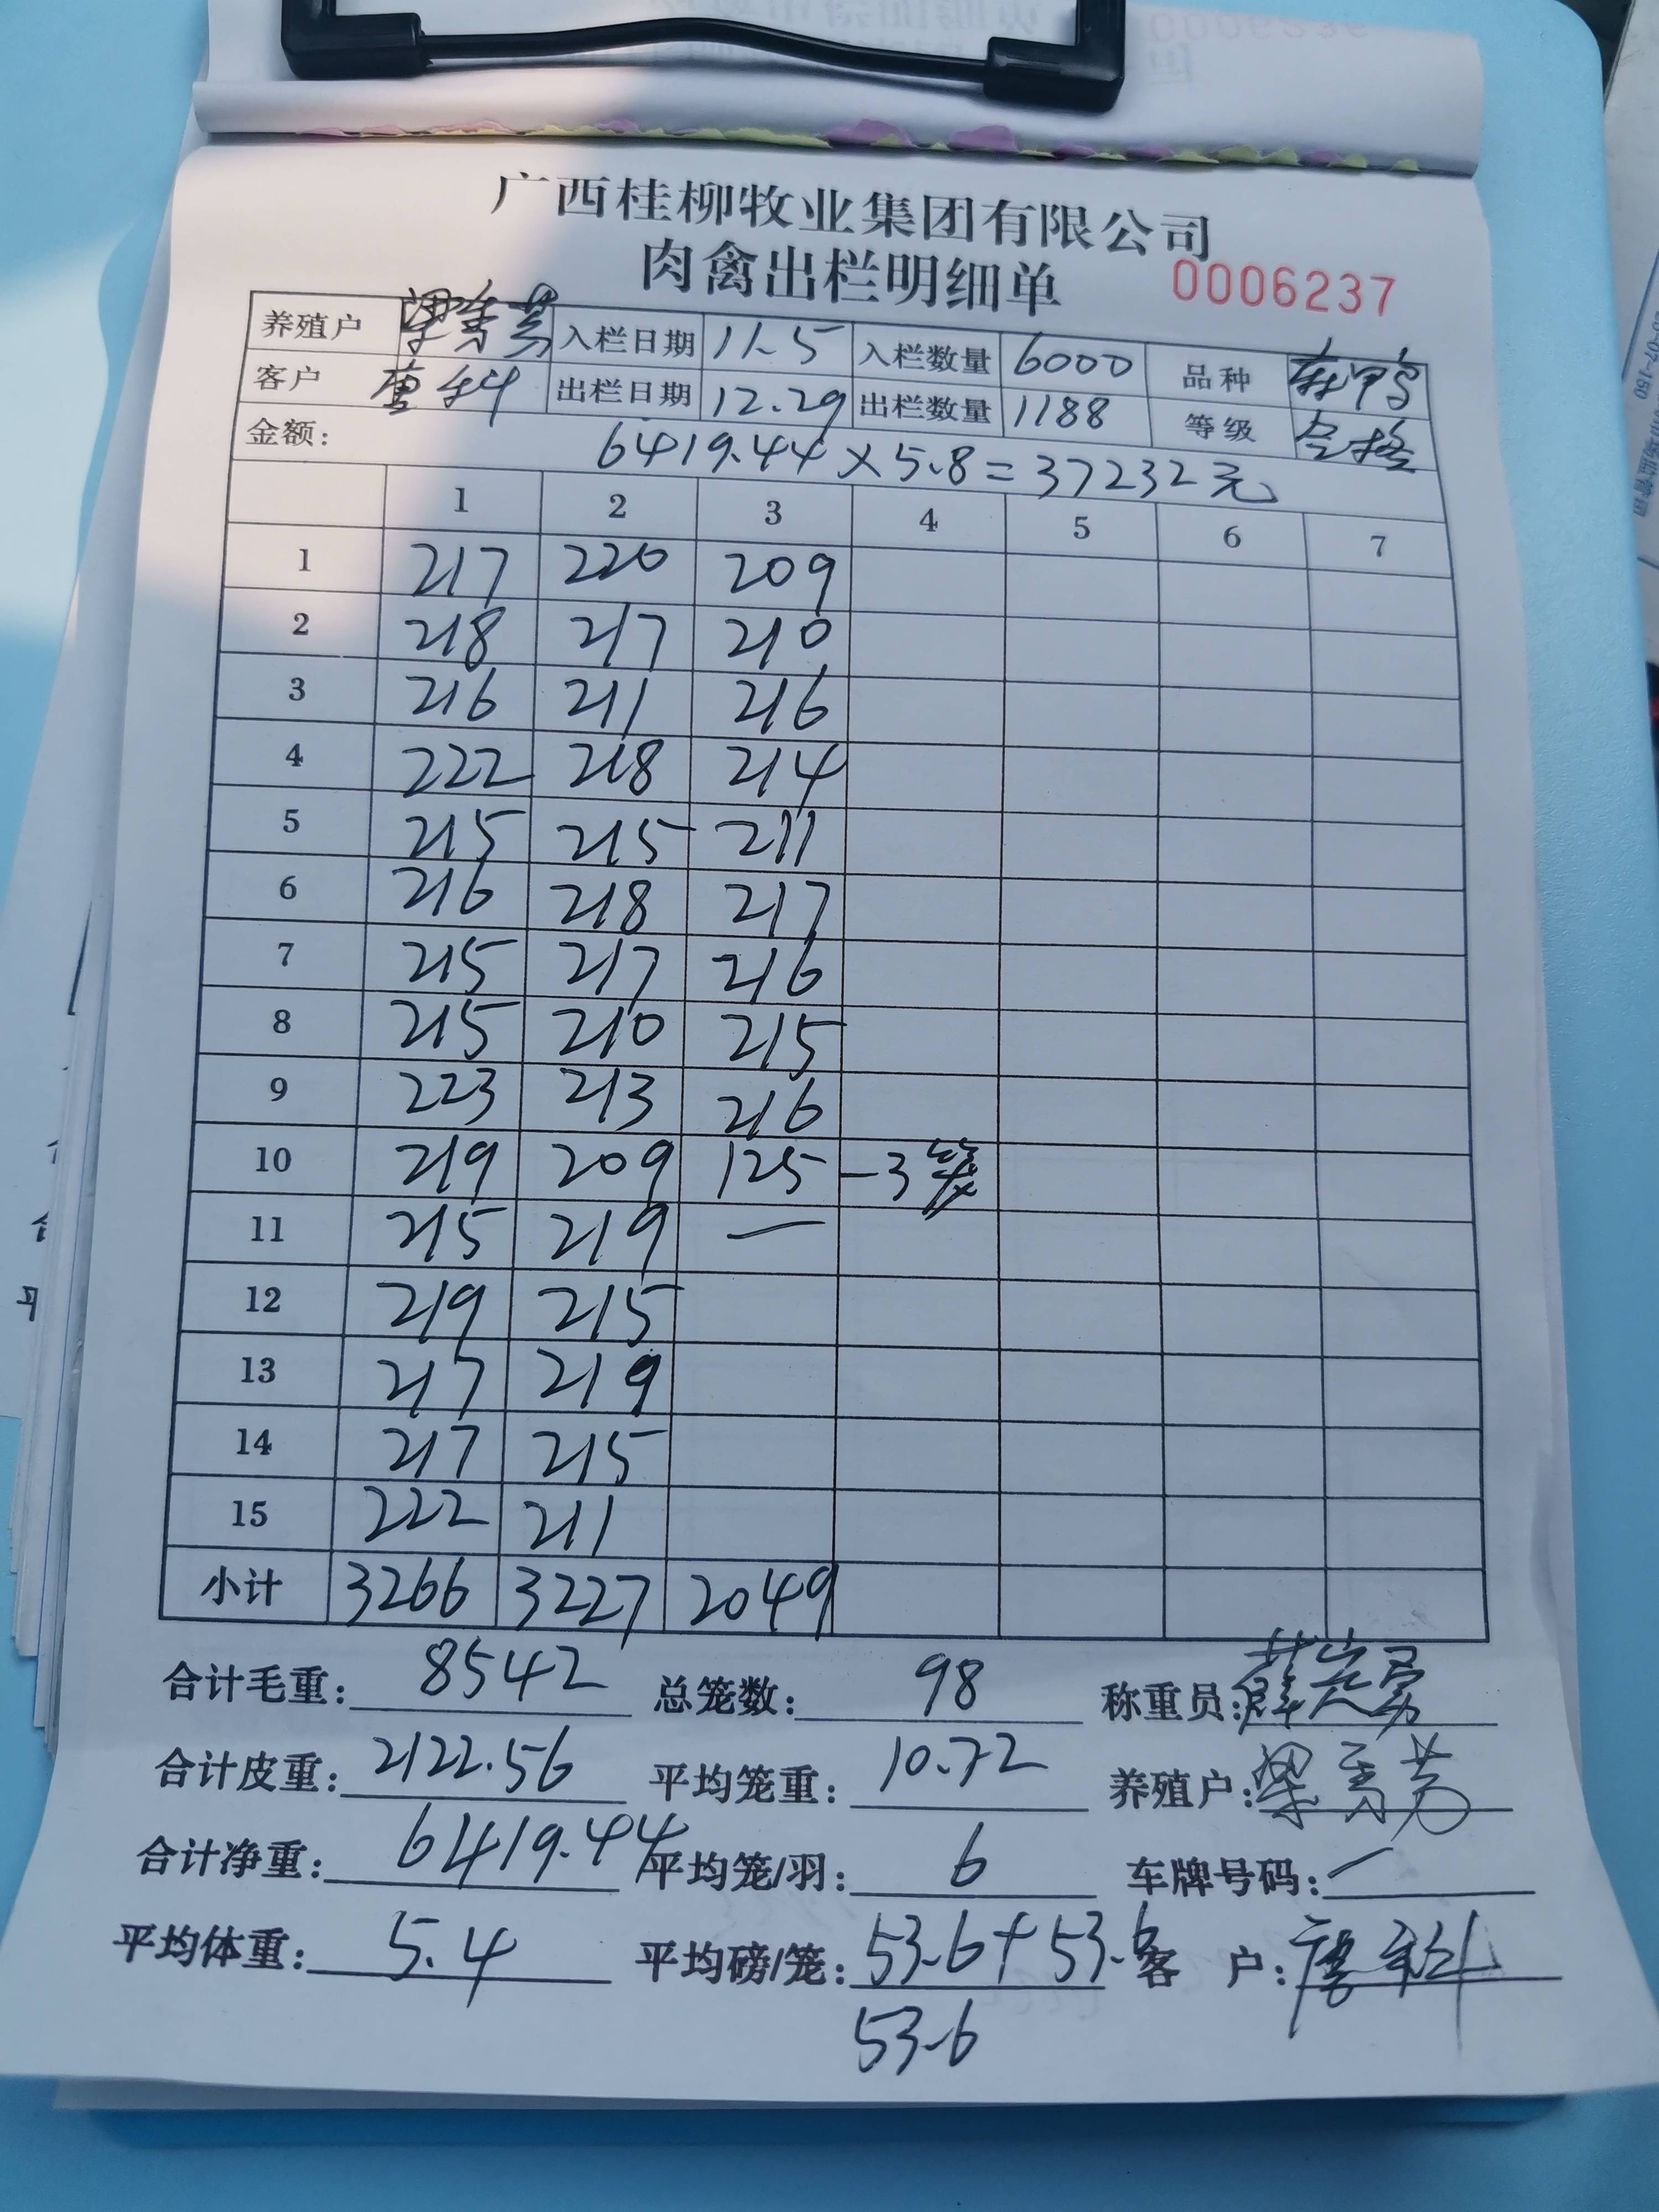 广西桂柳牧业集团有限公司
肉禽出栏明细单 0006237
养殖户 梁秀芳 入栏日期 11.5 入栏数量 6000 品种
客户 唐科 出栏日期 12.29 出栏数量 1188 等级 合格
金额: 6419.44×5.8=37232元
1 2 3 4 5 6 7
1 217 220 209
2 218 217 210
3 216 211 216
4 222 218 214
5 215 215 211
6 216 218 217
7 215 217 216
8 215 210 215
9 223 213 216
10 219 209 125 -3笼
11 215 219 —
12 219 215
13 217 219
14 217 215
15 222 211
小计 3266 3227 2049
合计毛重: 8542 总笼数: 98 称重员:
合计皮重: 2122.56 平均笼重: 10.72 养殖户: 梁秀芳
合计净重: 6419.44 平均笼/羽: 6 车牌号码: —
平均体重: 5.4 平均磅/笼: 53.6+53.6 客 户: 唐科
53.6